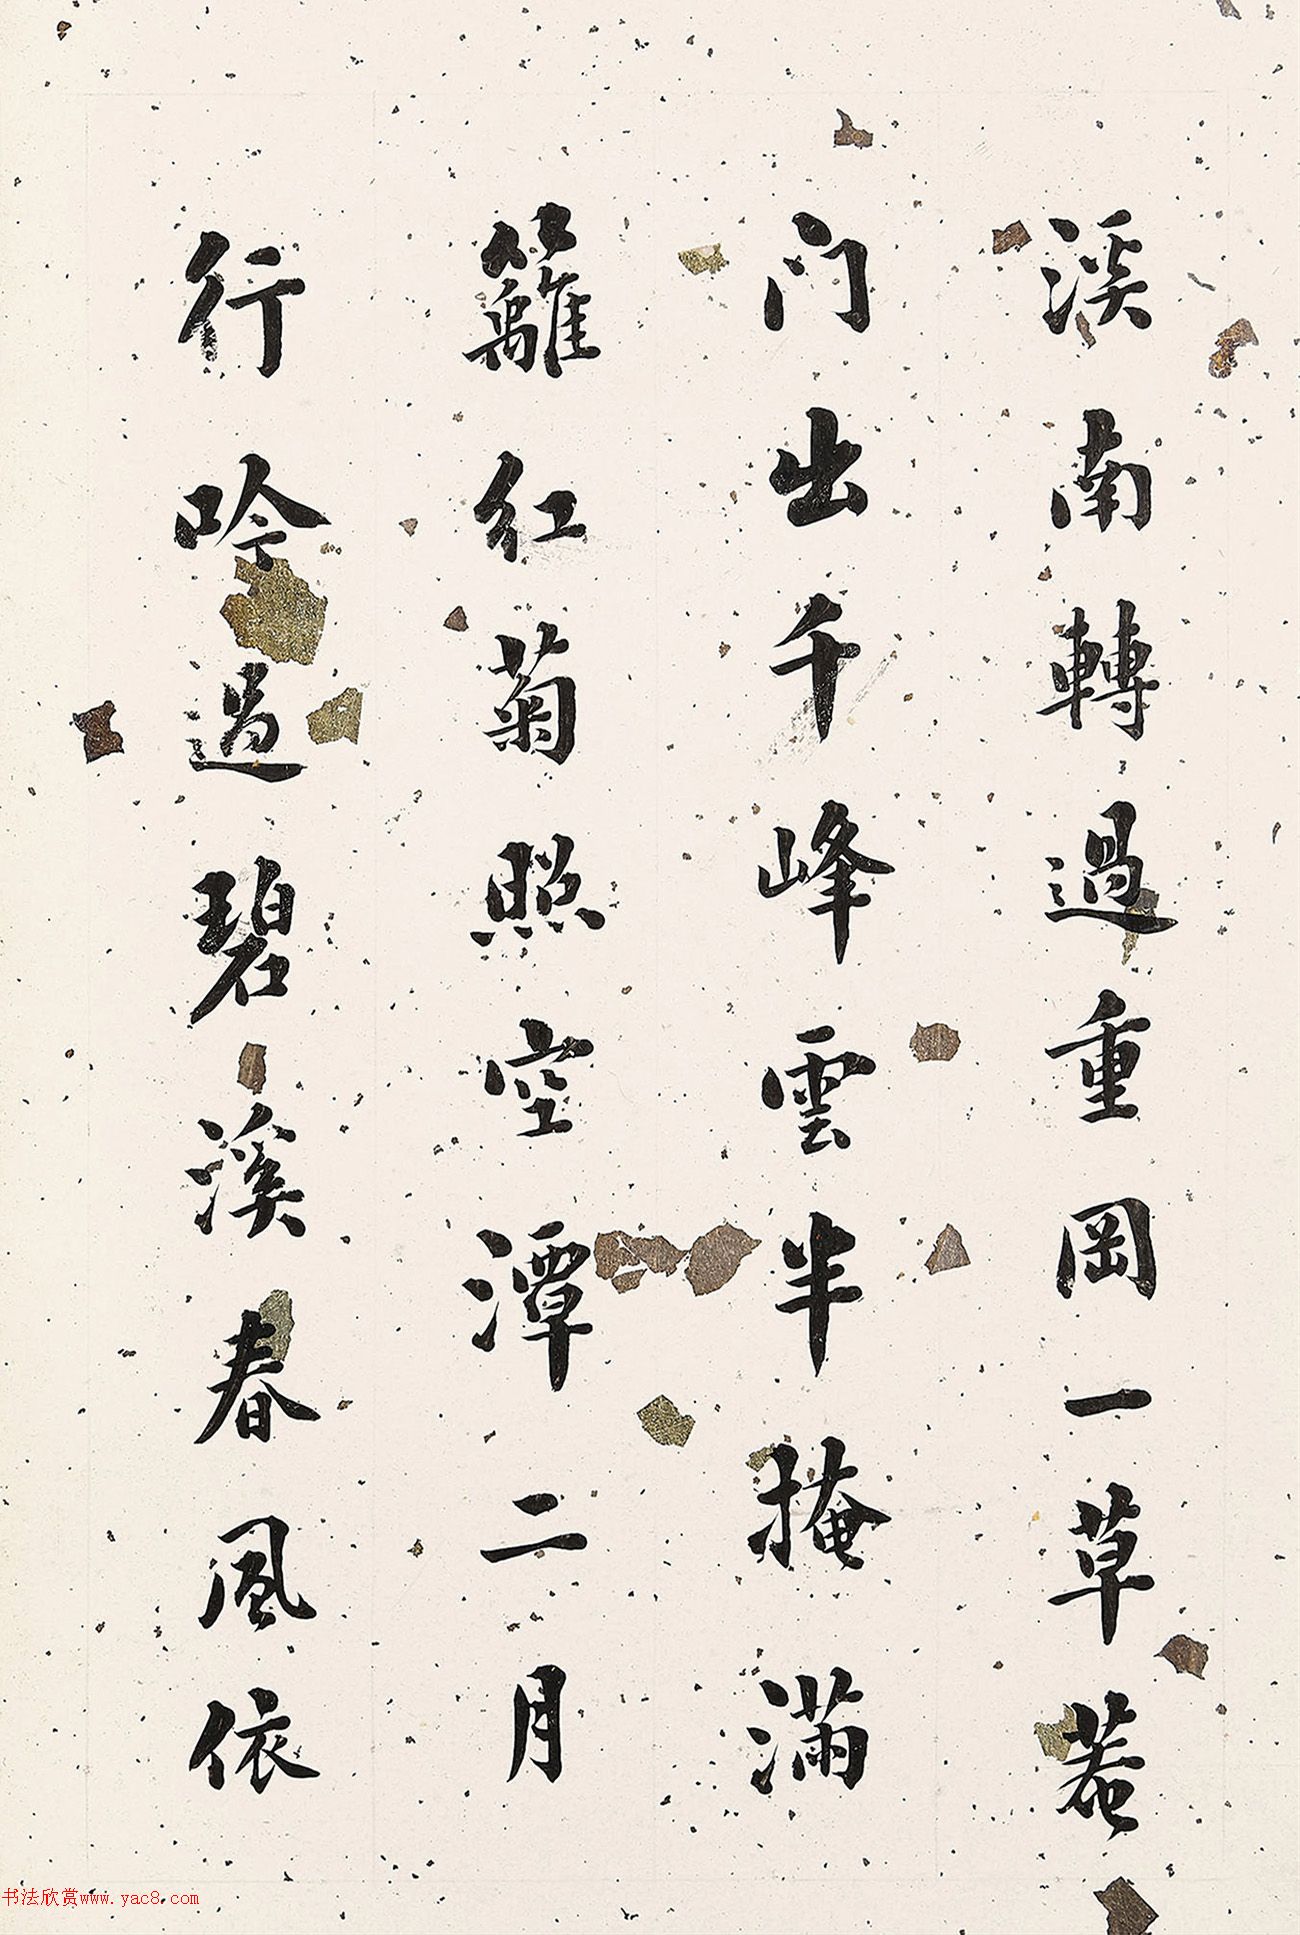 溪南轉過重岡一草菴
门出千峰雲半掩滿
籬紅菊照空潭二月
行吟過碧溪春風依
书法欣赏www.yac8.com